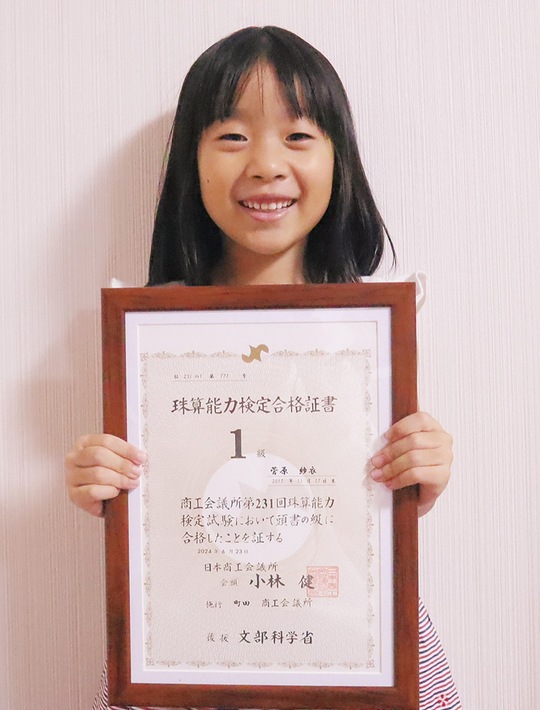 珠算能力検定合格証書
1級
菅原 紗衣
商工会議所第231回珠算能力
検定試験において頭書の級に
合格したことを証する
2024年6月23日
日本商工会議所
会頭 小林 健
施行 町田 商工会議所
後援 文部科学省